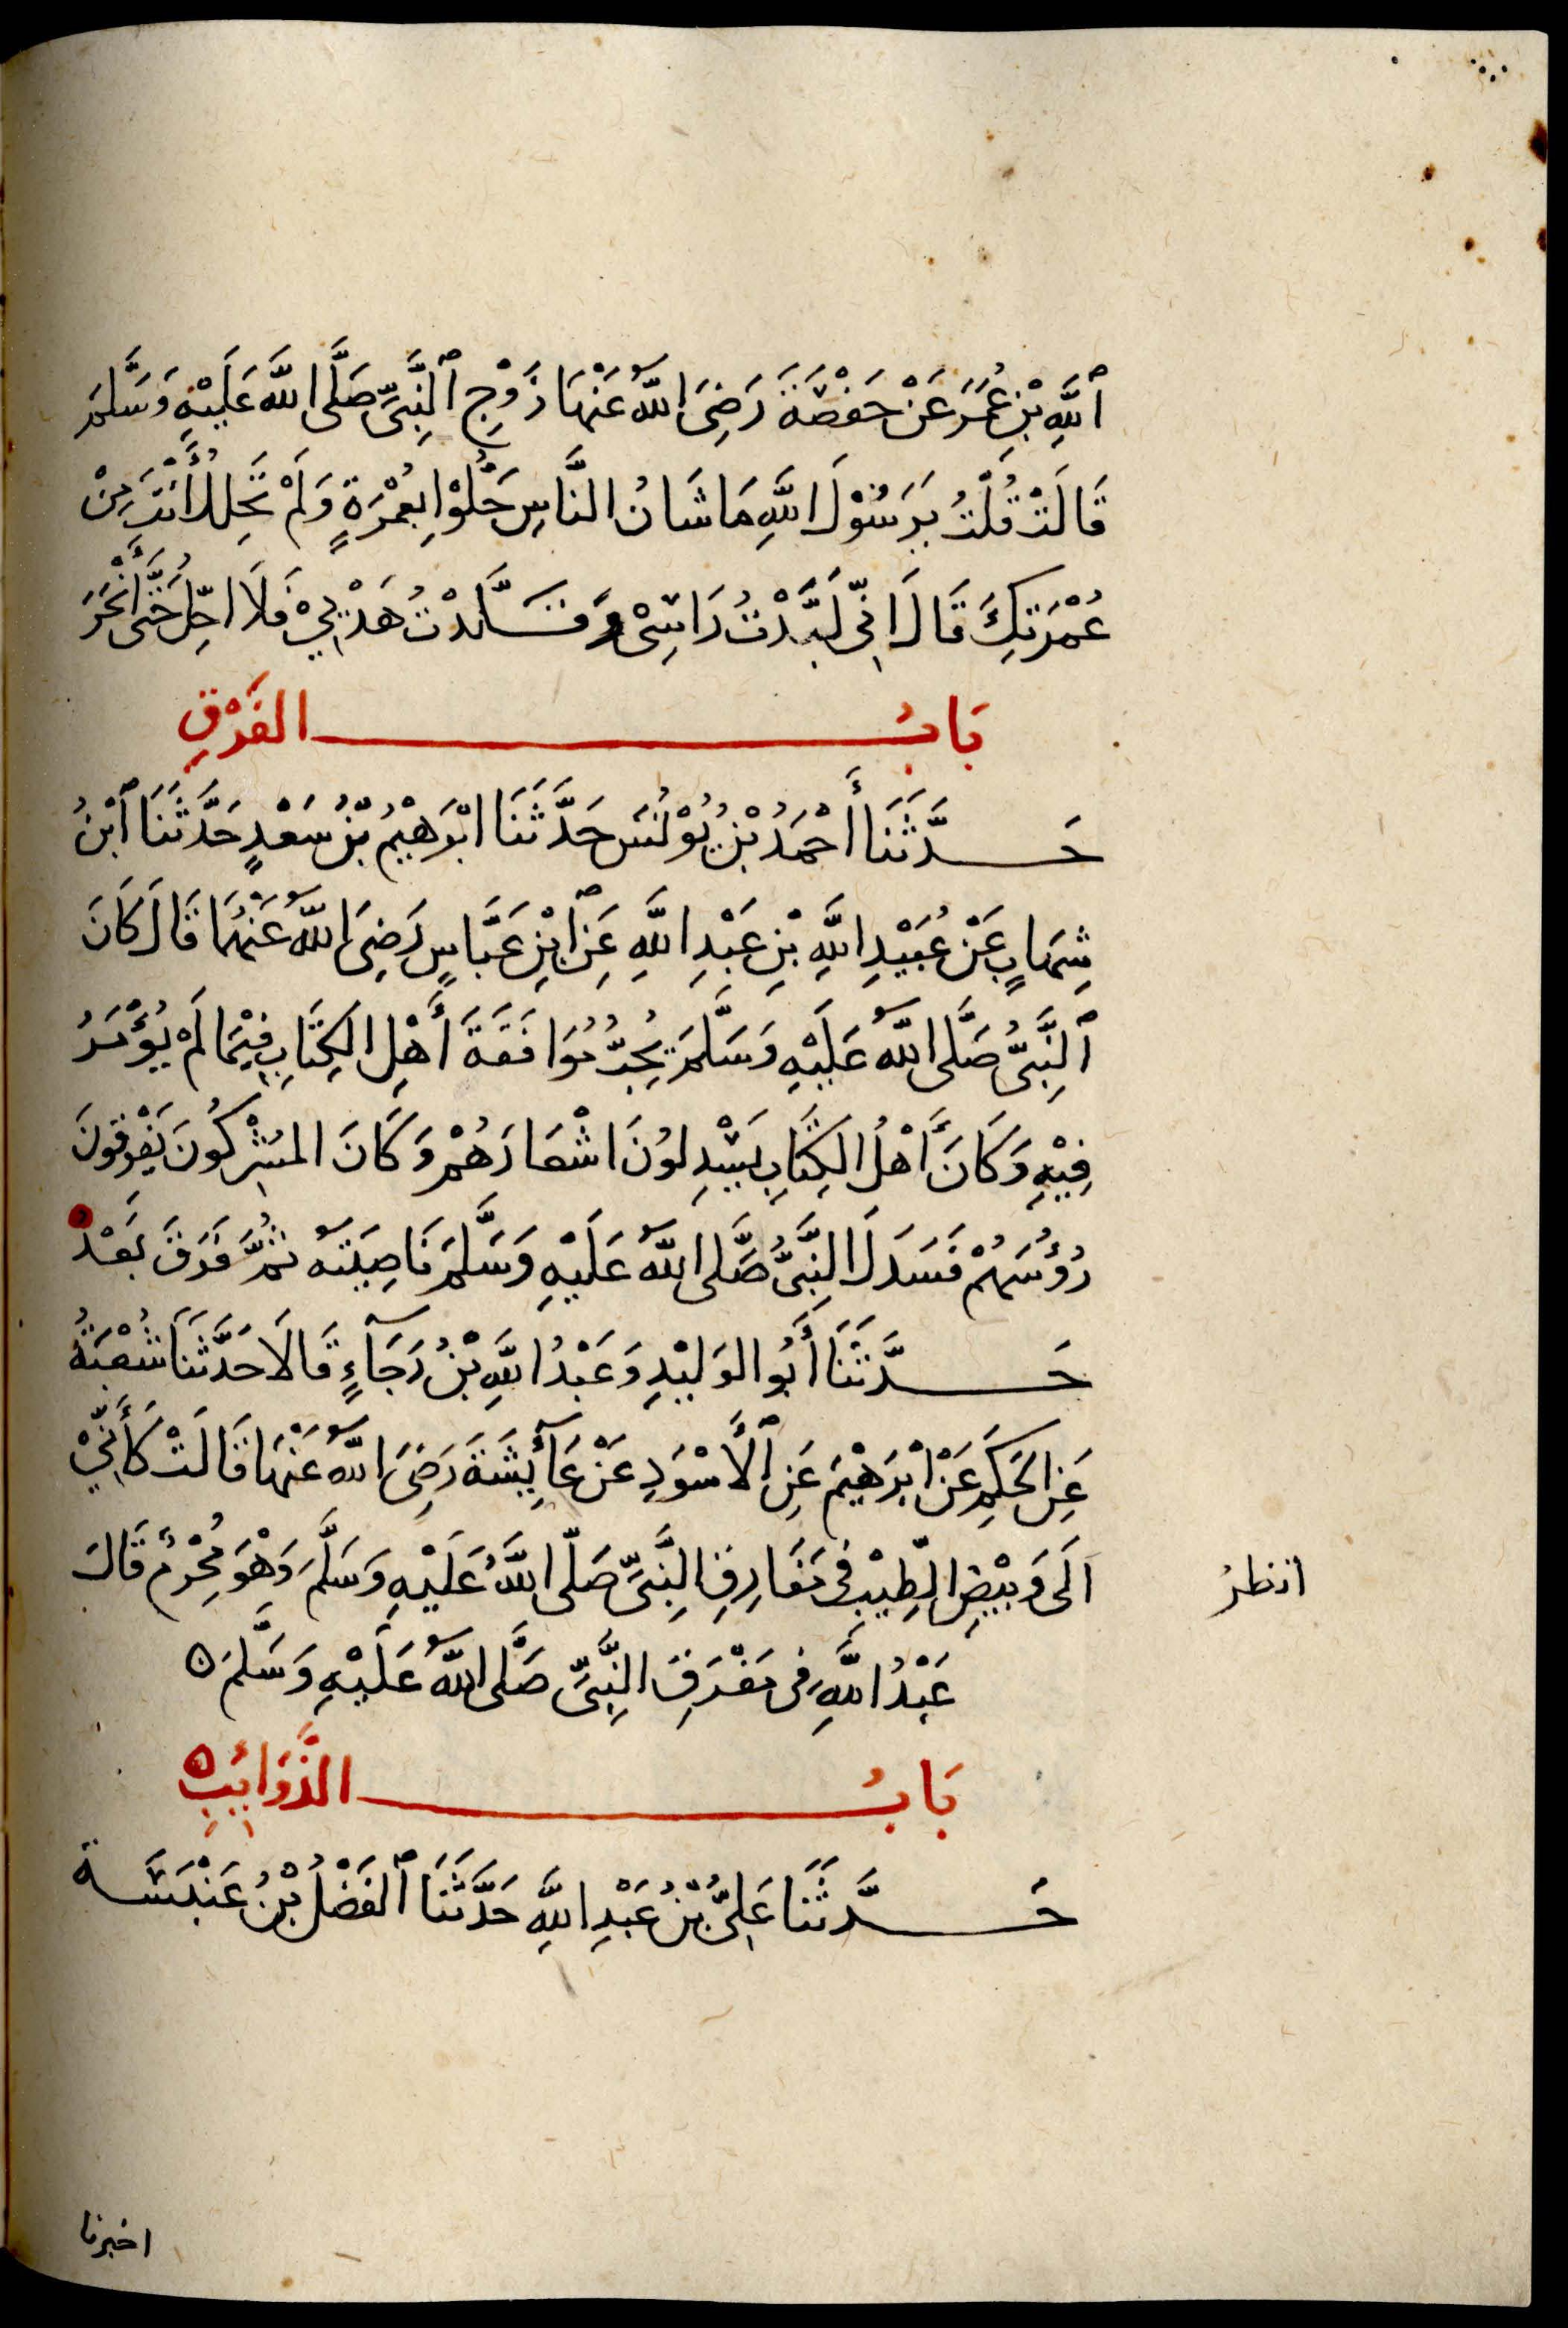 ٱللَّهِ بْنِ عُمَرَ عَنْ حَفْصَةَ رَضِىَ اللَّهُ عَنْهَا زَوْجِ ٱلنَّبِىِّ صَلَّى اللَّه عَلَيْهِ وَسَلَّمَ
قَالَتْ قُلْتُ يَرَسُوْلَ اللَّهِ مَا شَانُ النَّاسِ حَلُّوْا بِعُمْرَةٍ وَلَمْ تَحْلِلْ أَنْتَ مِنْ
عُمْرَتِكَ قَالَ اِنِّى لَبَّدْتُ رَاسِىْ وَقَلَّدْتُ هَدْيِيْ فَلَا احِلُّ حَتَّى أَنْحَرَ
بَابُ الفَرْقِ
حَدَّثَنَا أَحْمَدُ بْنُ يُوْنُسَ حَدَّثَنَا ابْرَهِيْمُ بْنُ سَعْدٍ حَدَّثَنَا ٱبْنُ
شِهَابٍ عَنْ عُبَيْدِ اللَّهِ بْنِ عَبْدِ اللَّهِ عَنِ ٱبْنِ عَبَّاسٍ رَضِىَ اللَّهُ عَنْهُمَا قَالَ كَانَ
ٱلنَّبِىُّ صَلَّى اللَّهُ عَلَيْهِ وَسَلَّمَ يُحِبُّ مُوَافَقَةَ أَهْلِ الكِتَابِ فِيْمَا لَمْ يُؤْمَرُ
فِيْهِ وَكَانَ أَهْلُ الكِتَابِ يَسْدِلُونَ اشْعَارَهُمْ وَكَانَ المُشْرِكُونَ يَفْرِقُونَ
رُؤُسَهُمْ فَسَدَلَ النَّبِىُّ صَلَّى اللَّهُ عَلَيْهِ وَسَلَّمَ نَاصِيَتَهُ ثُمَّ فَرَقَ بَعْدُ
حَدَّثَنَا أَبُو الوَلِيْدِ وَعَبْدُ اللَّهِ بْنُ رَجَآءٍ قَالَا حَدَّثَنَا شُعْبَةُ
عَنِ الحَكَمِ عَنْ ابْرَهِيْمَ عَنِ ٱلأَسْوَدِ عَنْ عَآئِشَةَ رَضِىَ اللَّهُ عَنْهَا قَالَتْ كَأَنِّيْ
اَلَى وَبِيْضِ الطِّيْبِ فى مَفَارِقِ النَّبِىِّ صَلَّى اللَّهُ عَلَيْهِ وَسَلَّمَ وَهْوَ مُحْرِمٌ قَالَ
انظرُ
عَبْدُ اللَّهِ فى مَفْرَقِ النَّبِىِّ صَلَّى اللَّهُ عَلَيْهِ وَسَلَّمَ ه
بَابُ الذَّوَائِبِ ه
حَدَّثَنَا عَلِىُّ بْنُ عَبْدِ اللَّهِ حَدَّثَنَا ٱلفَضْلُ بْنُ عَنْبَسَة
اخبرنا